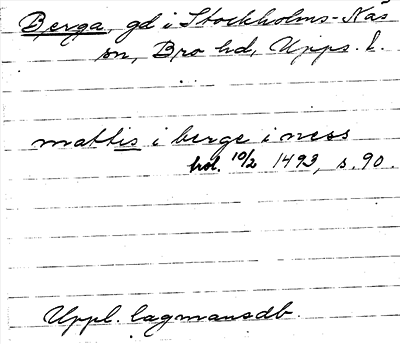 Berga, gd i Stockholms-Näs
sn, Bro hd, Upps. l.
mattis i berge i ness
hod. 10/2 1493, s. 90.
Uppl. lagmansdb.